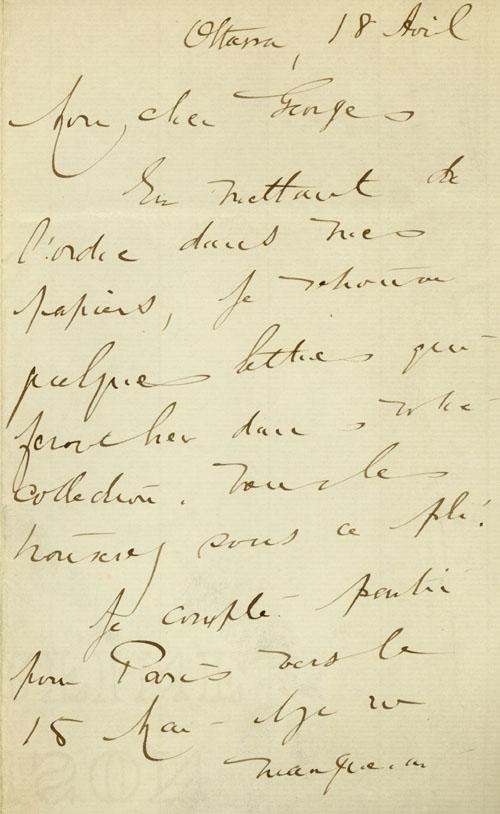 Ottawa, 18 Avril
Mon cher Georges
En mettant de
l'ordre dans mes
papiers, je retrouve
quelques lettres qui
feront bien dans votre
collection. Vous les
trouverez sous ce pli.
Je compte partir
pour Paris vers le
15 Mai - et je ne
manquerai